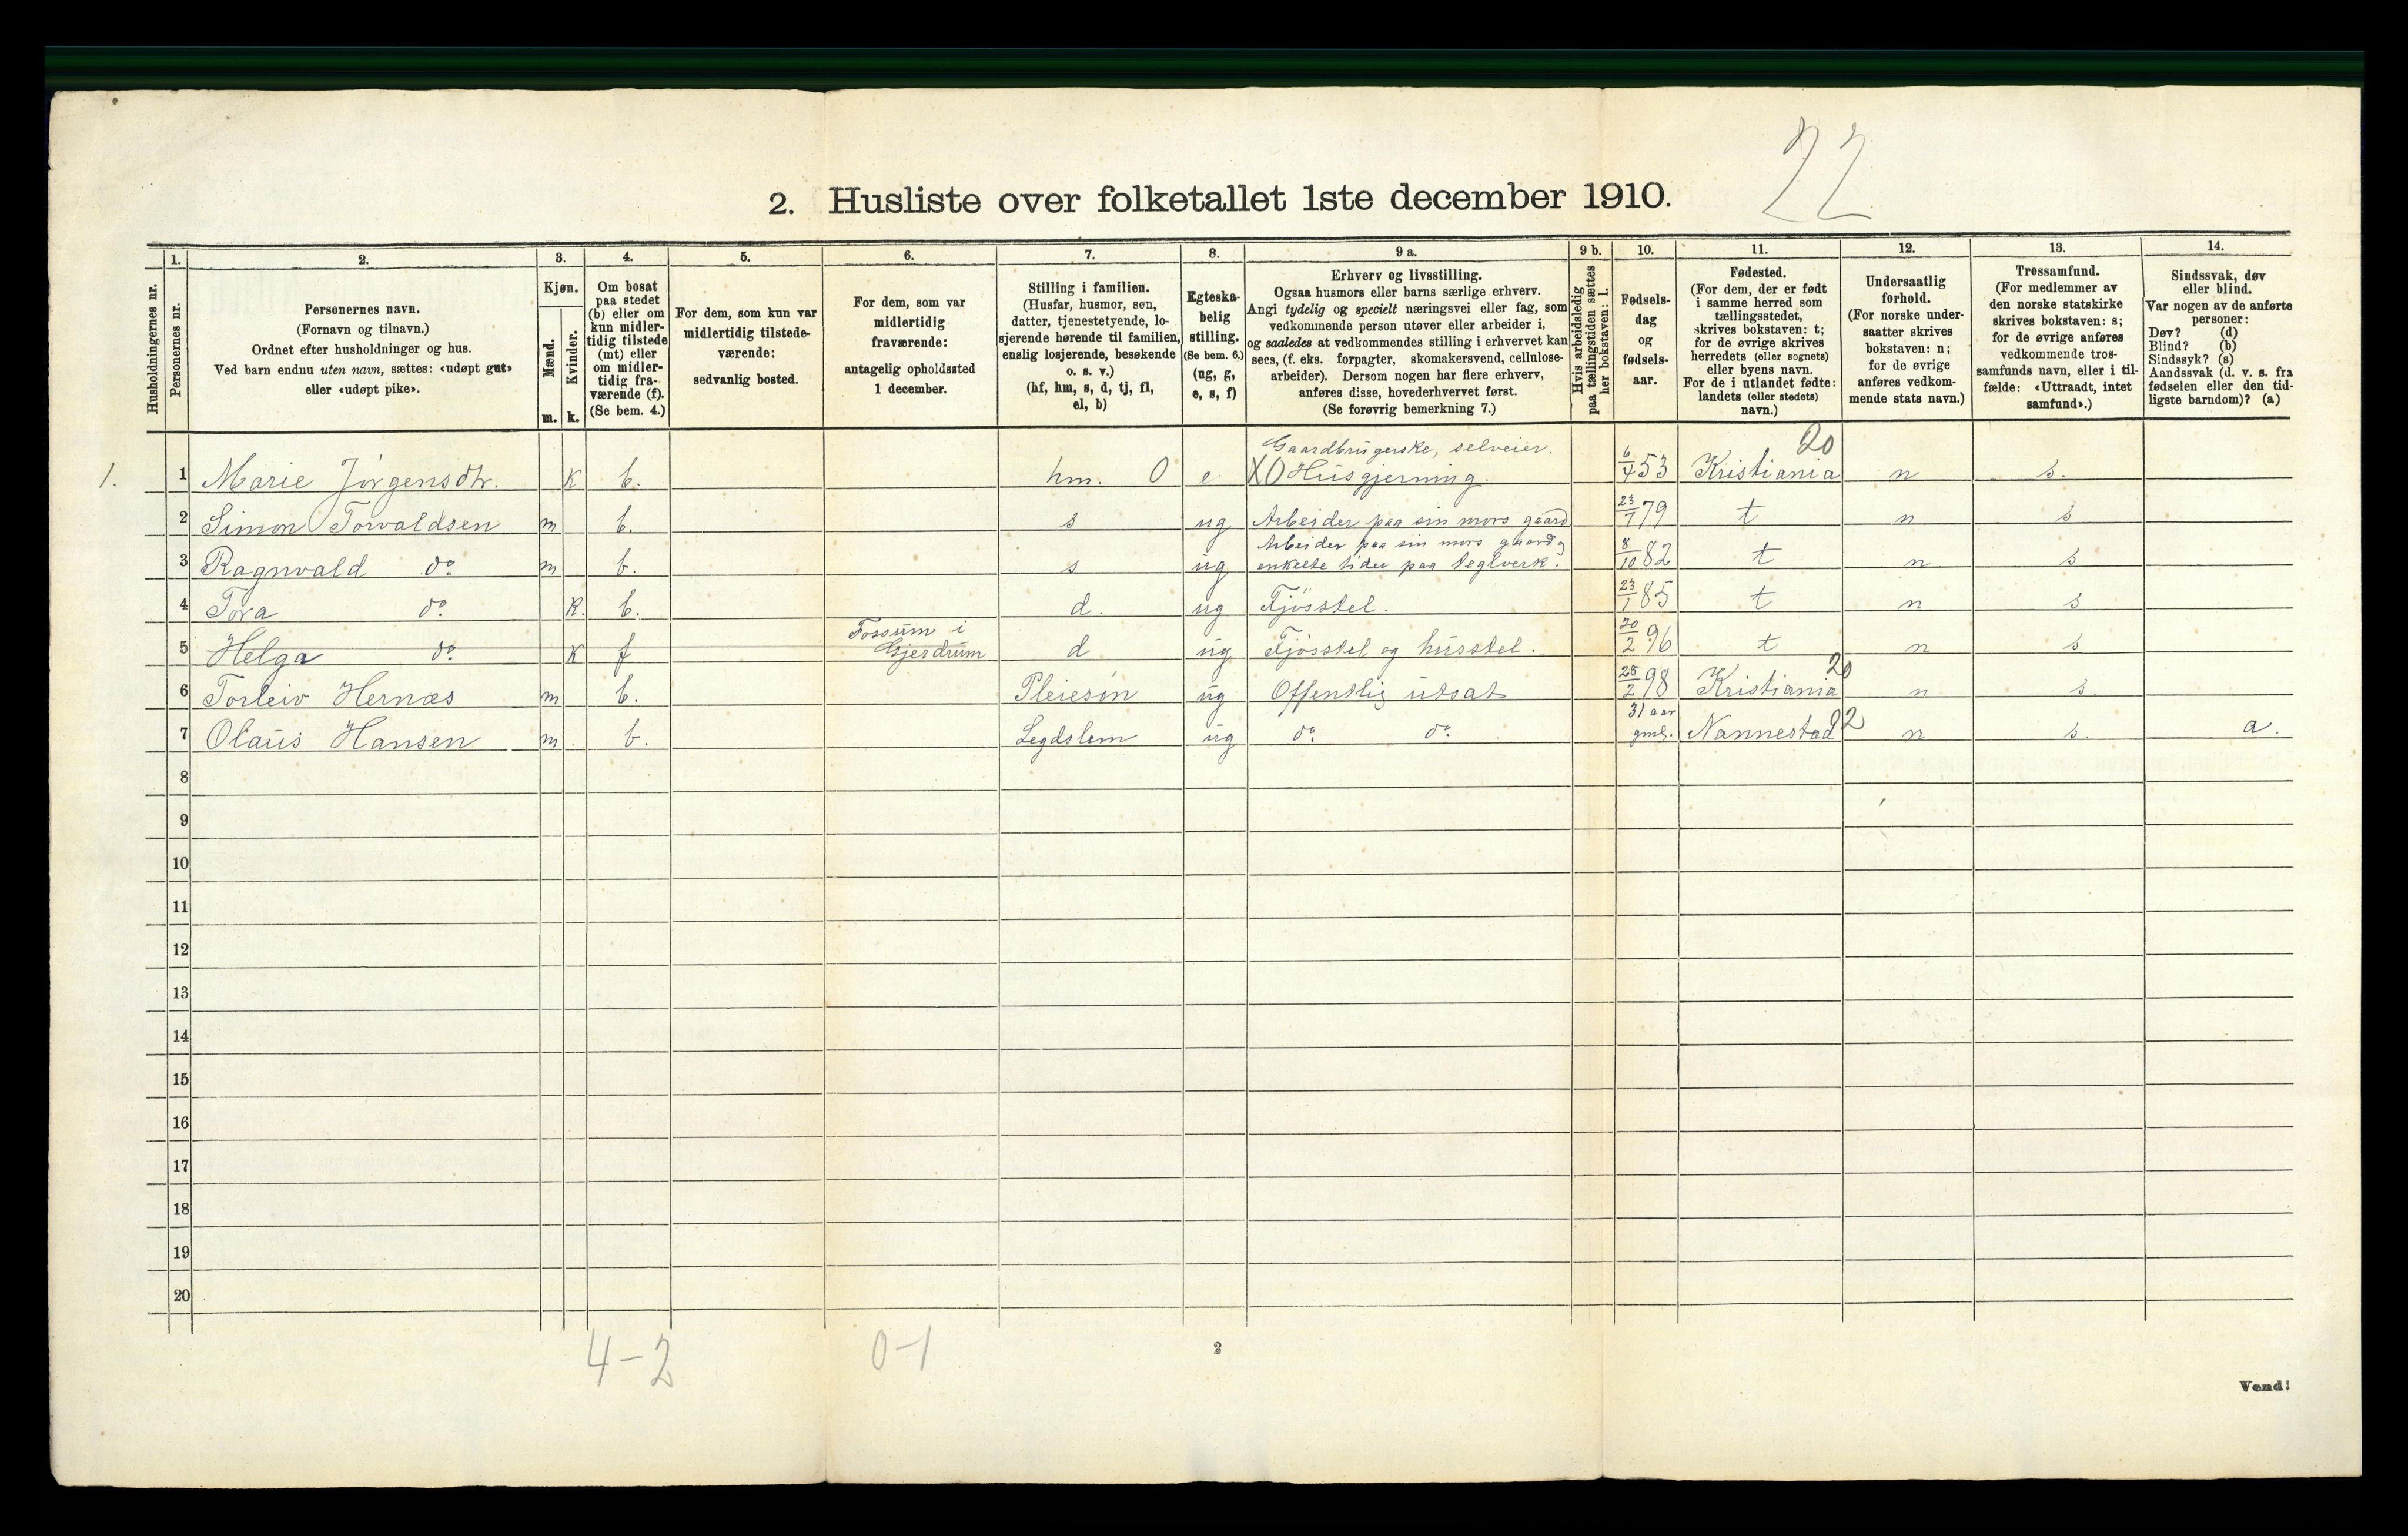 22
2. Husliste over folketallet 1ste december 1910.
Husholdningernes nr.
1. Personernes nr.
2. Personernes navn.
(Fornavn og tilnavn.)
Ordnet efter husholdninger og hus.
Ved barn endnu uten navn, sættes: «udøpt gut»
eller «udøpt pike».
3. Kjøn.
Mænd. m.
Kvinder. k.
4. Om bosat
paa stedet
(b) eller om
kun midler-
tidig tilstede
(mt) eller
om midler-
tidig fra-
værende (f).
(Se bem. 4.)
5. For dem, som kun var
midlertidig tilstede-
værende:
sedvanlig bosted.
6. For dem, som var
midlertidig
fraværende:
antagelig opholdssted
1 december.
7. Stilling i familien.
(Husfar, husmor, søn,
datter, tjenestetyende, lo-
sjerende hørende til familien,
enslig losjerende, besøkende
o. s. v.)
(hf, hm, s, d, tj, fl,
el, b)
8. Egteska-
belig
stilling.
(Se bem. 6.)
(ug, g,
e, s, f)
9 a. Erhverv og livsstilling.
Ogsaa husmors eller barns særlige erhverv.
Angi tydelig og specielt næringsvei eller fag, som
vedkommende person utøver eller arbeider i,
og saaledes at vedkommendes stilling i erhvervet kan
sees, (f. eks. forpagter, skomakersvend, cellulose-
arbeider). Dersom nogen har flere erhverv,
anføres disse, hovederhvervet først.
(Se forøvrig bemerkning 7.)
9 b. Hvis arbeidsledig
paa tællingstiden sættes
her bokstaven: l.
10. Fødsels-
dag
og
fødsels-
aar.
11. Fødested.
(For dem, der er født
i samme herred som
tællingsstedet,
skrives bokstaven: t;
for de øvrige skrives
herredets (eller sognets)
eller byens navn.
For de i utlandet fødte:
landets (eller stedets)
navn.)
12. Undersaatlig
forhold.
(For norske under-
saatter skrives
bokstaven: n;
for de øvrige
anføres vedkom-
mende stats navn.)
13. Trossamfund.
(For medlemmer av
den norske statskirke
skrives bokstaven: s;
for de øvrige anføres
vedkommende tros-
samfunds navn, eller i til-
fælde: «Uttraadt, intet
samfund».)
14. Sindssvak, døv
eller blind.
Var nogen av de anførte
personer:
Døv? (d)
Blind? (b)
Sindssyk? (s)
Aandssvak (d. v. s. fra
fødselen eller den tid-
ligste barndom)? (a)
Gaardbrugerske, selveier. 20
1. 1 Marie Jörgensdtr. K b. hm. O e. XO Husgjerning. 6/4 53 Kristiania n s.
2 Simon Torvaldsen m b. s ug Arbeider paa sin mors gaard 23/1 79 t n s
Arbeider paa sin mors gaard og
3 Ragnvald do. m b. s ug enkelte tider paa teglverk. 8/10 82 t n s
4 Tora do. K. b. d. ug Fjösstel. 23/1 85 t n s
Fossum i
5 Helga do. K f Gjerdrum d ug Fjösstel og husstel. 20/2 96 t n s
6 Torleiv Hernæs m b. Pleiesøn ug Offentlig utsat 28/2 98 Kristiania 20 n s.
31 aar
7 Olaus Hansen m. b. Legdslem ug do. do. gml. Nannestad 22 n s. a.
8
9
10
11
12
13
14
15
16
17
18
19
20
4-2 0-1
2
Vend!